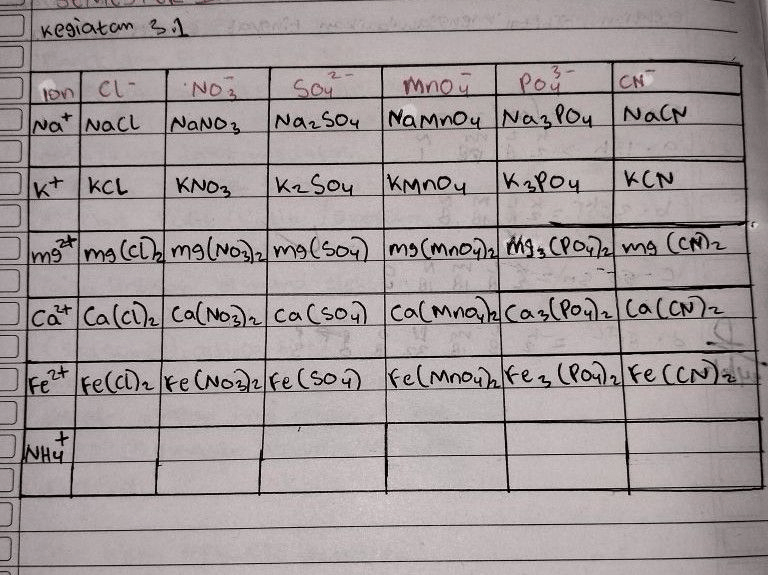 Kegiatan 3.1
Ion Cl⁻ NO₃⁻ SO₄²⁻ MnO₄⁻ PO₄³⁻ CN⁻
Na⁺ NaCl NaNO₃ Na₂SO₄ NaMnO₄ Na₃PO₄ NaCN
K⁺ KCl KNO₃ K₂SO₄ KMnO₄ K₃PO₄ KCN
Mg²⁺ Mg(Cl)₂ Mg(NO₃)₂ Mg(SO₄) Mg(MnO₄)₂ Mg₃(PO₄)₂ Mg(CN)₂
Ca²⁺ Ca(Cl)₂ Ca(NO₃)₂ Ca(SO₄) Ca(MnO₄)₂ Ca₃(PO₄)₂ Ca(CN)₂
Fe²⁺ Fe(Cl)₂ Fe(NO₃)₂ Fe(SO₄) Fe(MnO₄)₂ Fe₃(PO₄)₂ Fe(CN)₂
NH₄⁺